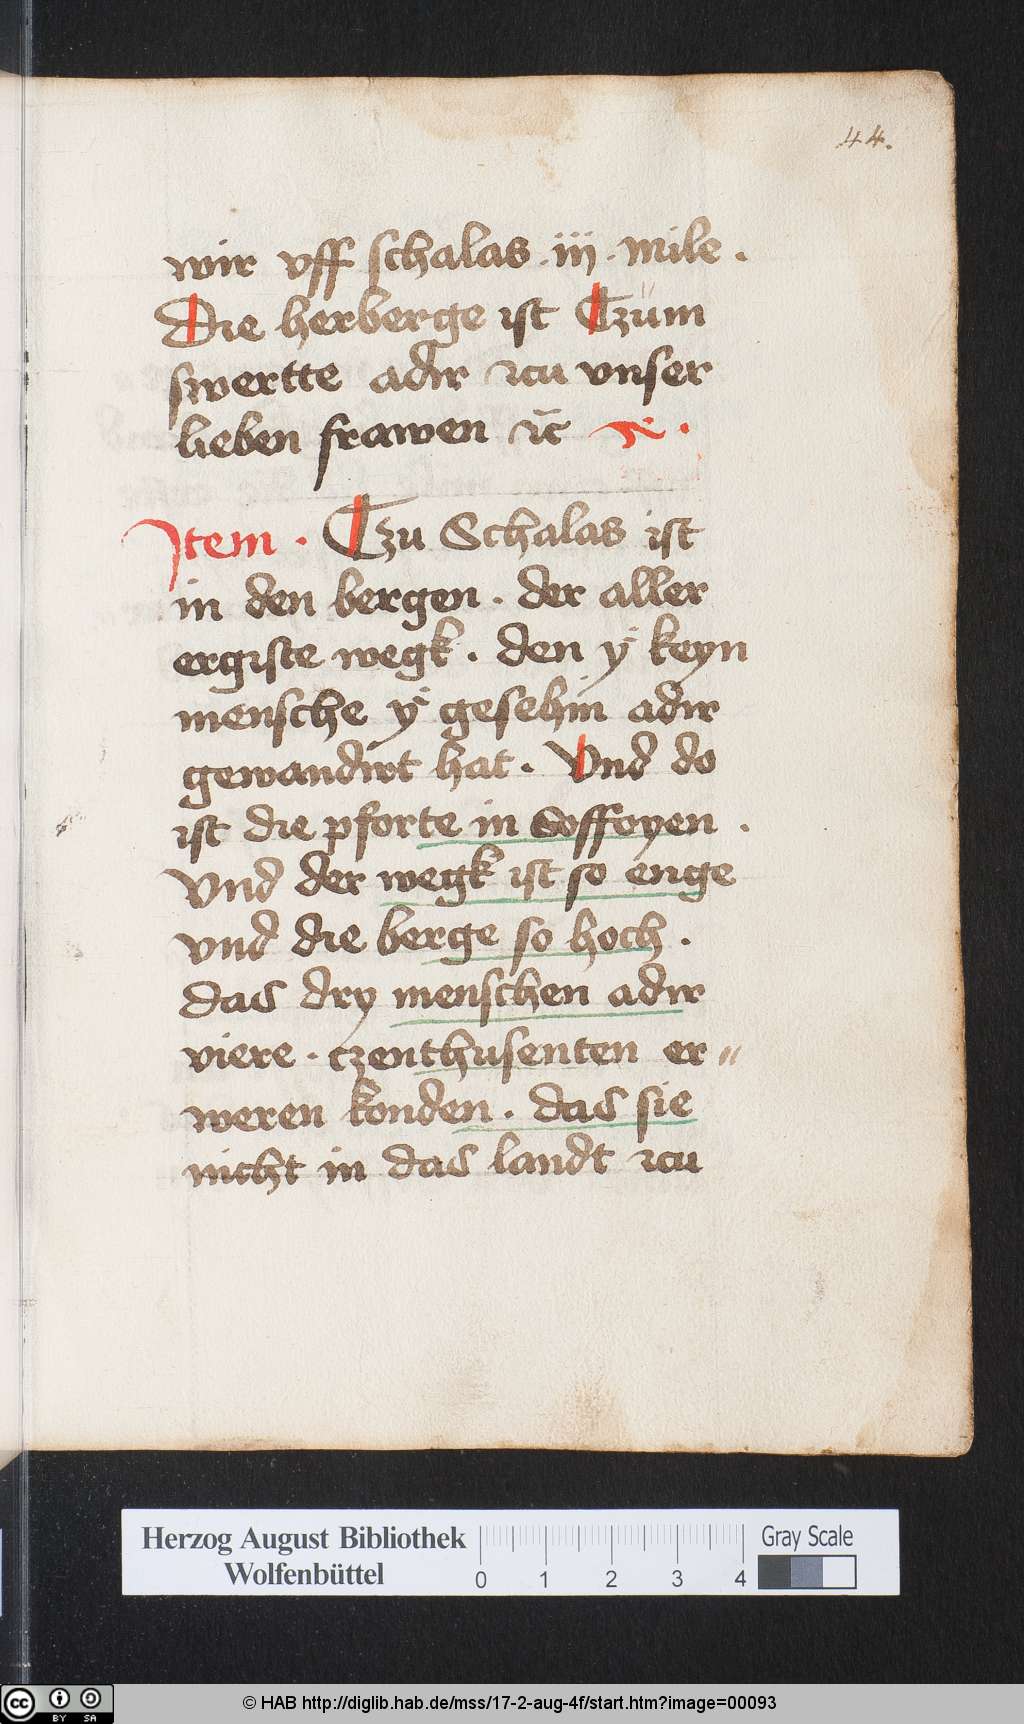 44.
wir vff schalas · iij · mile .
Die herberge ist Tzüm
swertte adir zcu vnser
lieben frawen zc̄
Jtem · Tzu Schalas ist
in den bergen . der aller
ergiste wegk . den y keyn
mensche y gesehin adir
gewandirt hat . Vnd do
ist die pforte in Soffoyen .
Vnd der wegk ist so enge
vnd die berge so hoch .
das dry menschen adir
viere . czenthusenten er〃
weren konden . das sie
nicht in das landt zcu
Herzog August Bibliothek
Wolfenbüttel
0 1 2 3 4
Gray Scale
cc BY SA
© HAB http://diglib.hab.de/mss/17-2-aug-4f/start.htm?image=00093